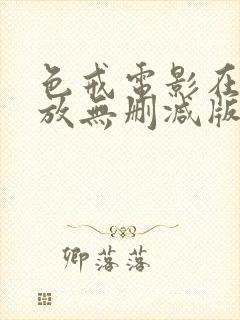 色戒電影在
放無刪減版
卿落落